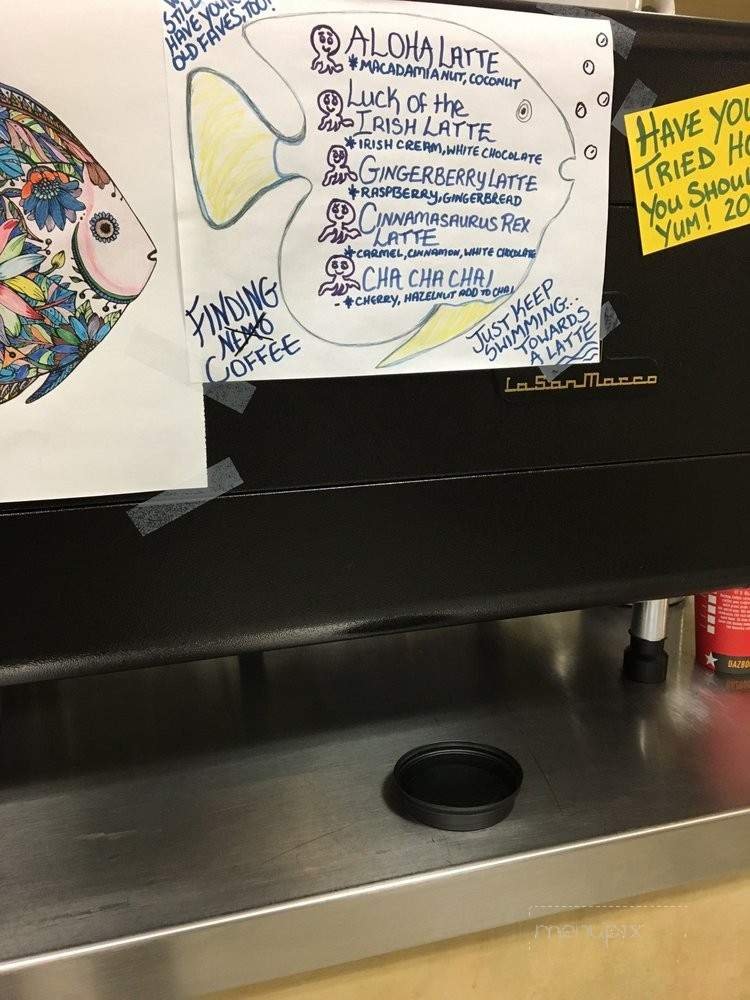 STILL
HAVE YOUR
OLD FAVES, TOO!
ALOHA LATTE
*MACADAMIA NUT, COCONUT
LUCK OF THE
IRISH LATTE
*IRISH CREAM, WHITE CHOCOLATE
GINGERBERRY LATTE
*RASPBERRY, GINGERBREAD
CINNAMASAURUS REX
LATTE
*CARMEL, CINNAMON, WHITE CHOCOLATE
CHA CHA CHAI
*CHERRY, HAZELNUT ADD TO CHAI
FINDING
NEMO
COFFEE
JUST KEEP
SWIMMING...
TOWARDS
A LATTE
HAVE YOU
TRIED
YOU SHOULD
YUM! 20
La San Marco
DAZBO
menupix